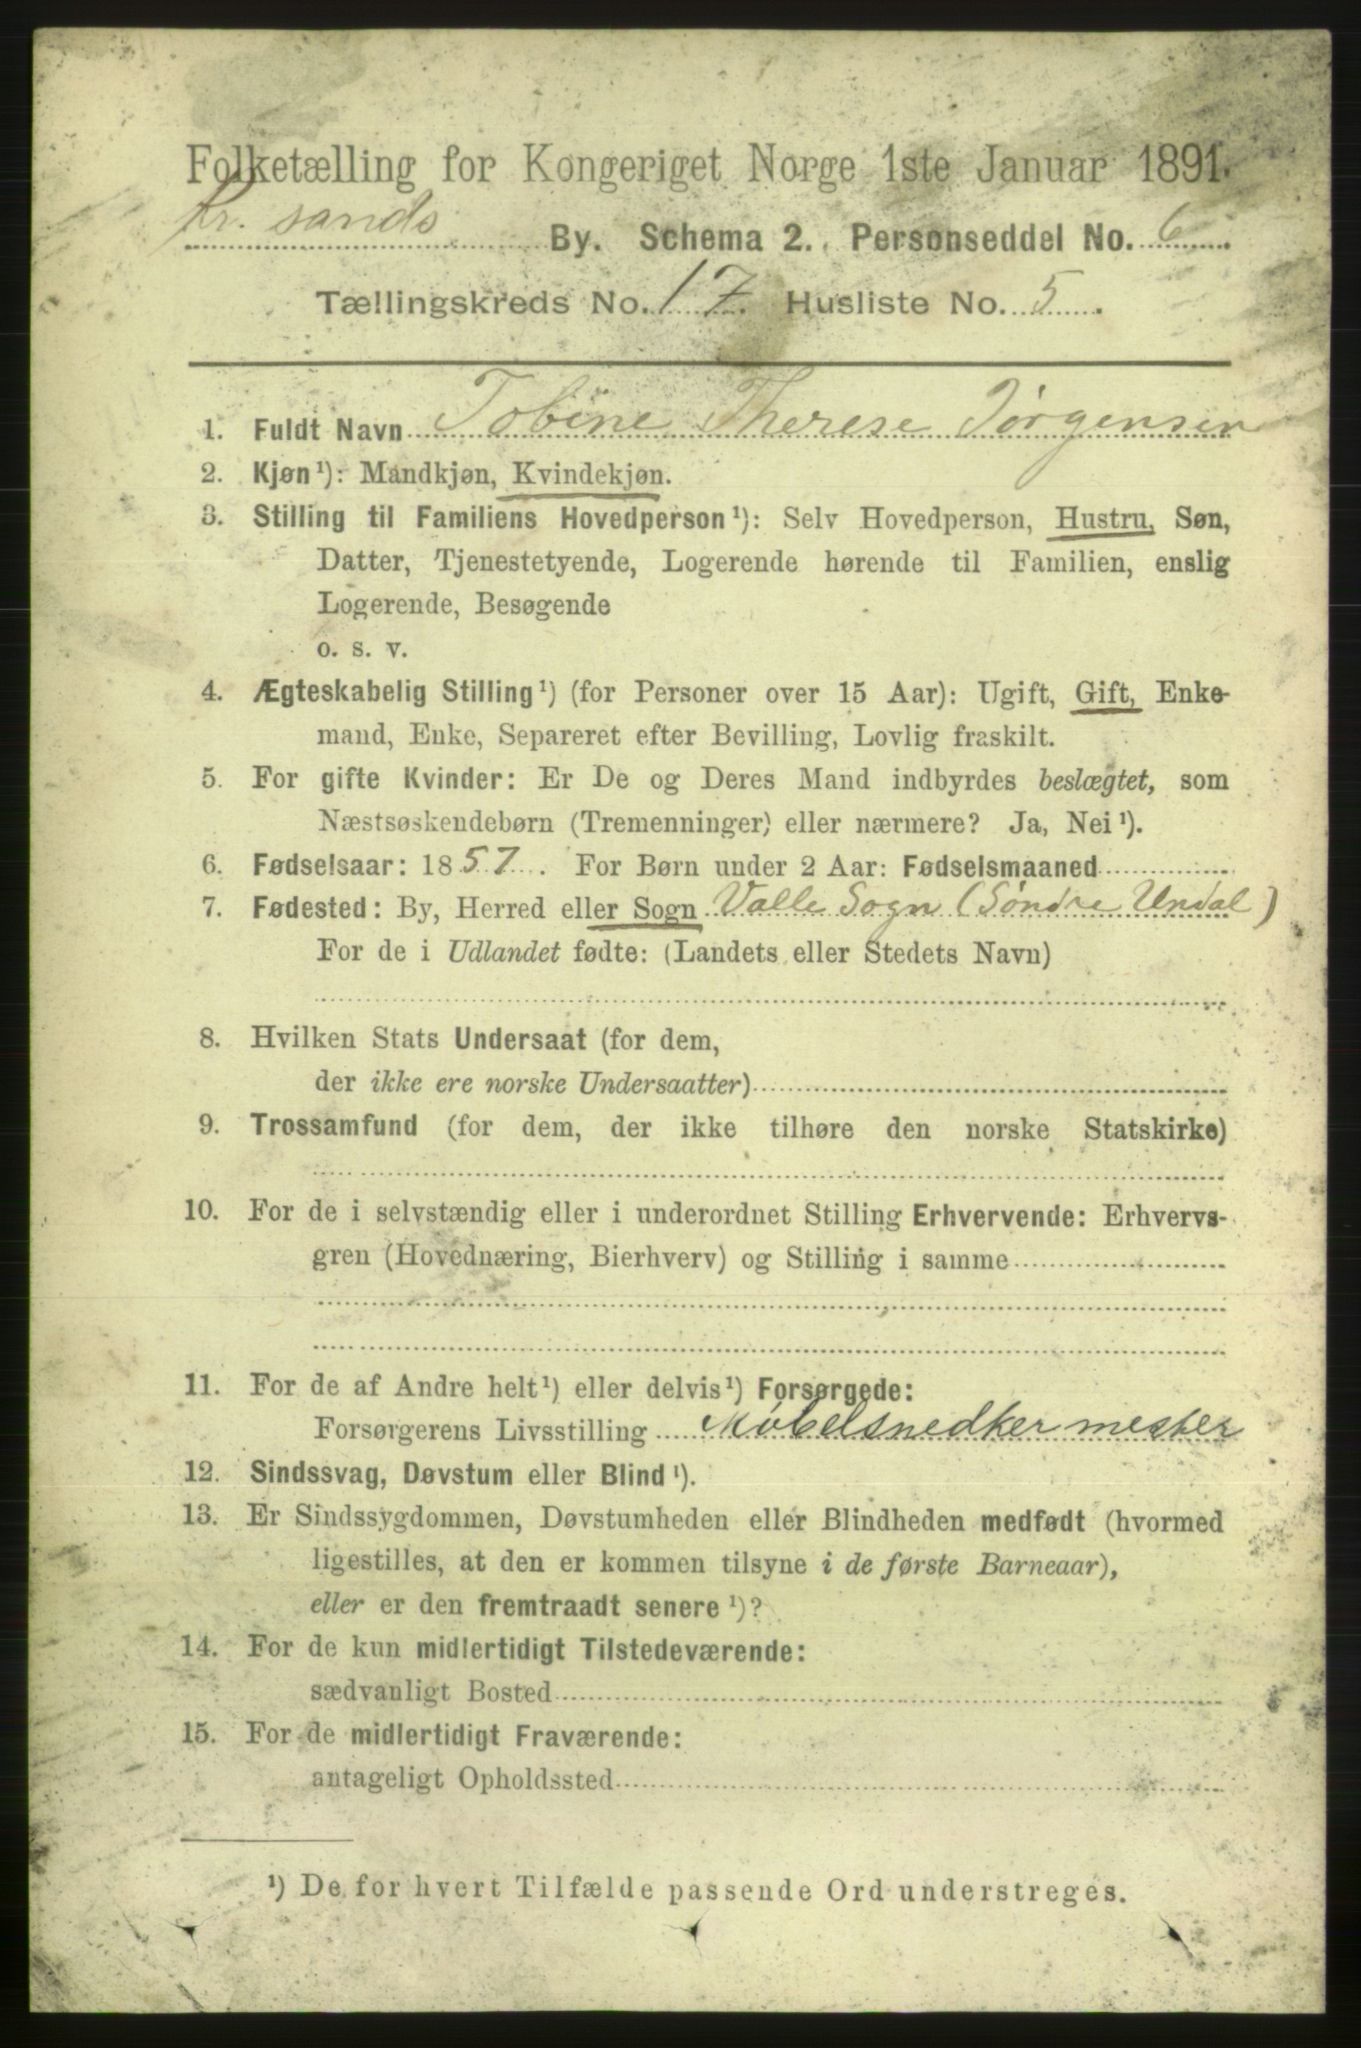 Folketælling for Kongeriget Norge 1ste Januar 1891.
Kr. sands By. Schema 2. Personseddel No. 6
Tællingskreds No. 17. Husliste No. 5.
1. Fuldt Navn Tobine Therese Jørgensen
2. Kjøn¹): Mandkjøn, Kvindekjøn.
3. Stilling til Familiens Hovedperson¹): Selv Hovedperson, Hustru, Søn,
Datter, Tjenestetyende, Logerende hørende til Familien, enslig
Logerende, Besøgende
o. s. v.
4. Ægteskabelig Stilling¹) (for Personer over 15 Aar): Ugift, Gift, Enke-
mand, Enke, Separeret efter Bevilling, Lovlig fraskilt.
5. For gifte Kvinder: Er De og Deres Mand indbyrdes beslægtet, som
Næstsøskendebørn (Tremenninger) eller nærmere? Ja, Nei¹).
6. Fødselsaar: 1857. For Børn under 2 Aar: Fødselsmaaned
7. Fødested: By, Herred eller Sogn Valle Sogn (Søndre Undal)
For de i Udlandet fødte: (Landets eller Stedets Navn)
8. Hvilken Stats Undersaat (for dem,
der ikke ere norske Undersaatter)
9. Trossamfund (for dem, der ikke tilhøre den norske Statskirke)
10. For de i selvstændig eller i underordnet Stilling Erhvervende: Erhvervs-
gren (Hovednæring, Bierhverv) og Stilling i samme
11. For de af Andre helt¹) eller delvis¹) Forsørgede:
Forsørgerens Livsstilling Møbelsnedker mester
12. Sindssvag, Døvstum eller Blind¹).
13. Er Sindssygdommen, Døvstumheden eller Blindheden medfødt (hvormed
ligestilles, at den er kommen tilsyne i de første Barneaar),
eller er den fremtraadt senere¹)?
14. For de kun midlertidigt Tilstedeværende:
sædvanligt Bosted
15. For de midlertidigt Fraværende:
antageligt Opholdssted
¹) De for hvert Tilfælde passende Ord understreges.